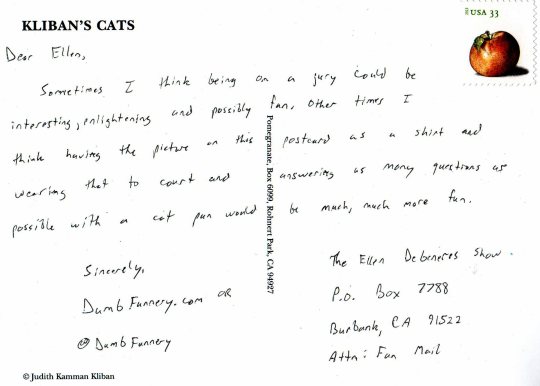 KLIBAN'S CATS
USA 33
Dear Ellen,
Sometimes I think being on a jury could be
interesting, enlightening and possibly fun. Other times I
think having the picture on this postcard as a shirt and
wearing that to court and answering as many questions as
possible with a cat pun would be much, much more fun.
Pomegranate, Box 6099, Rohnert Park, CA 94927
Sincerely,
DumbFunnery.com OR
@DumbFunnery
The Ellen Debeneres Show.
P.O. Box 7788
Burbank, CA 91522
Attn: Fan Mail
© Judith Kamman Kliban